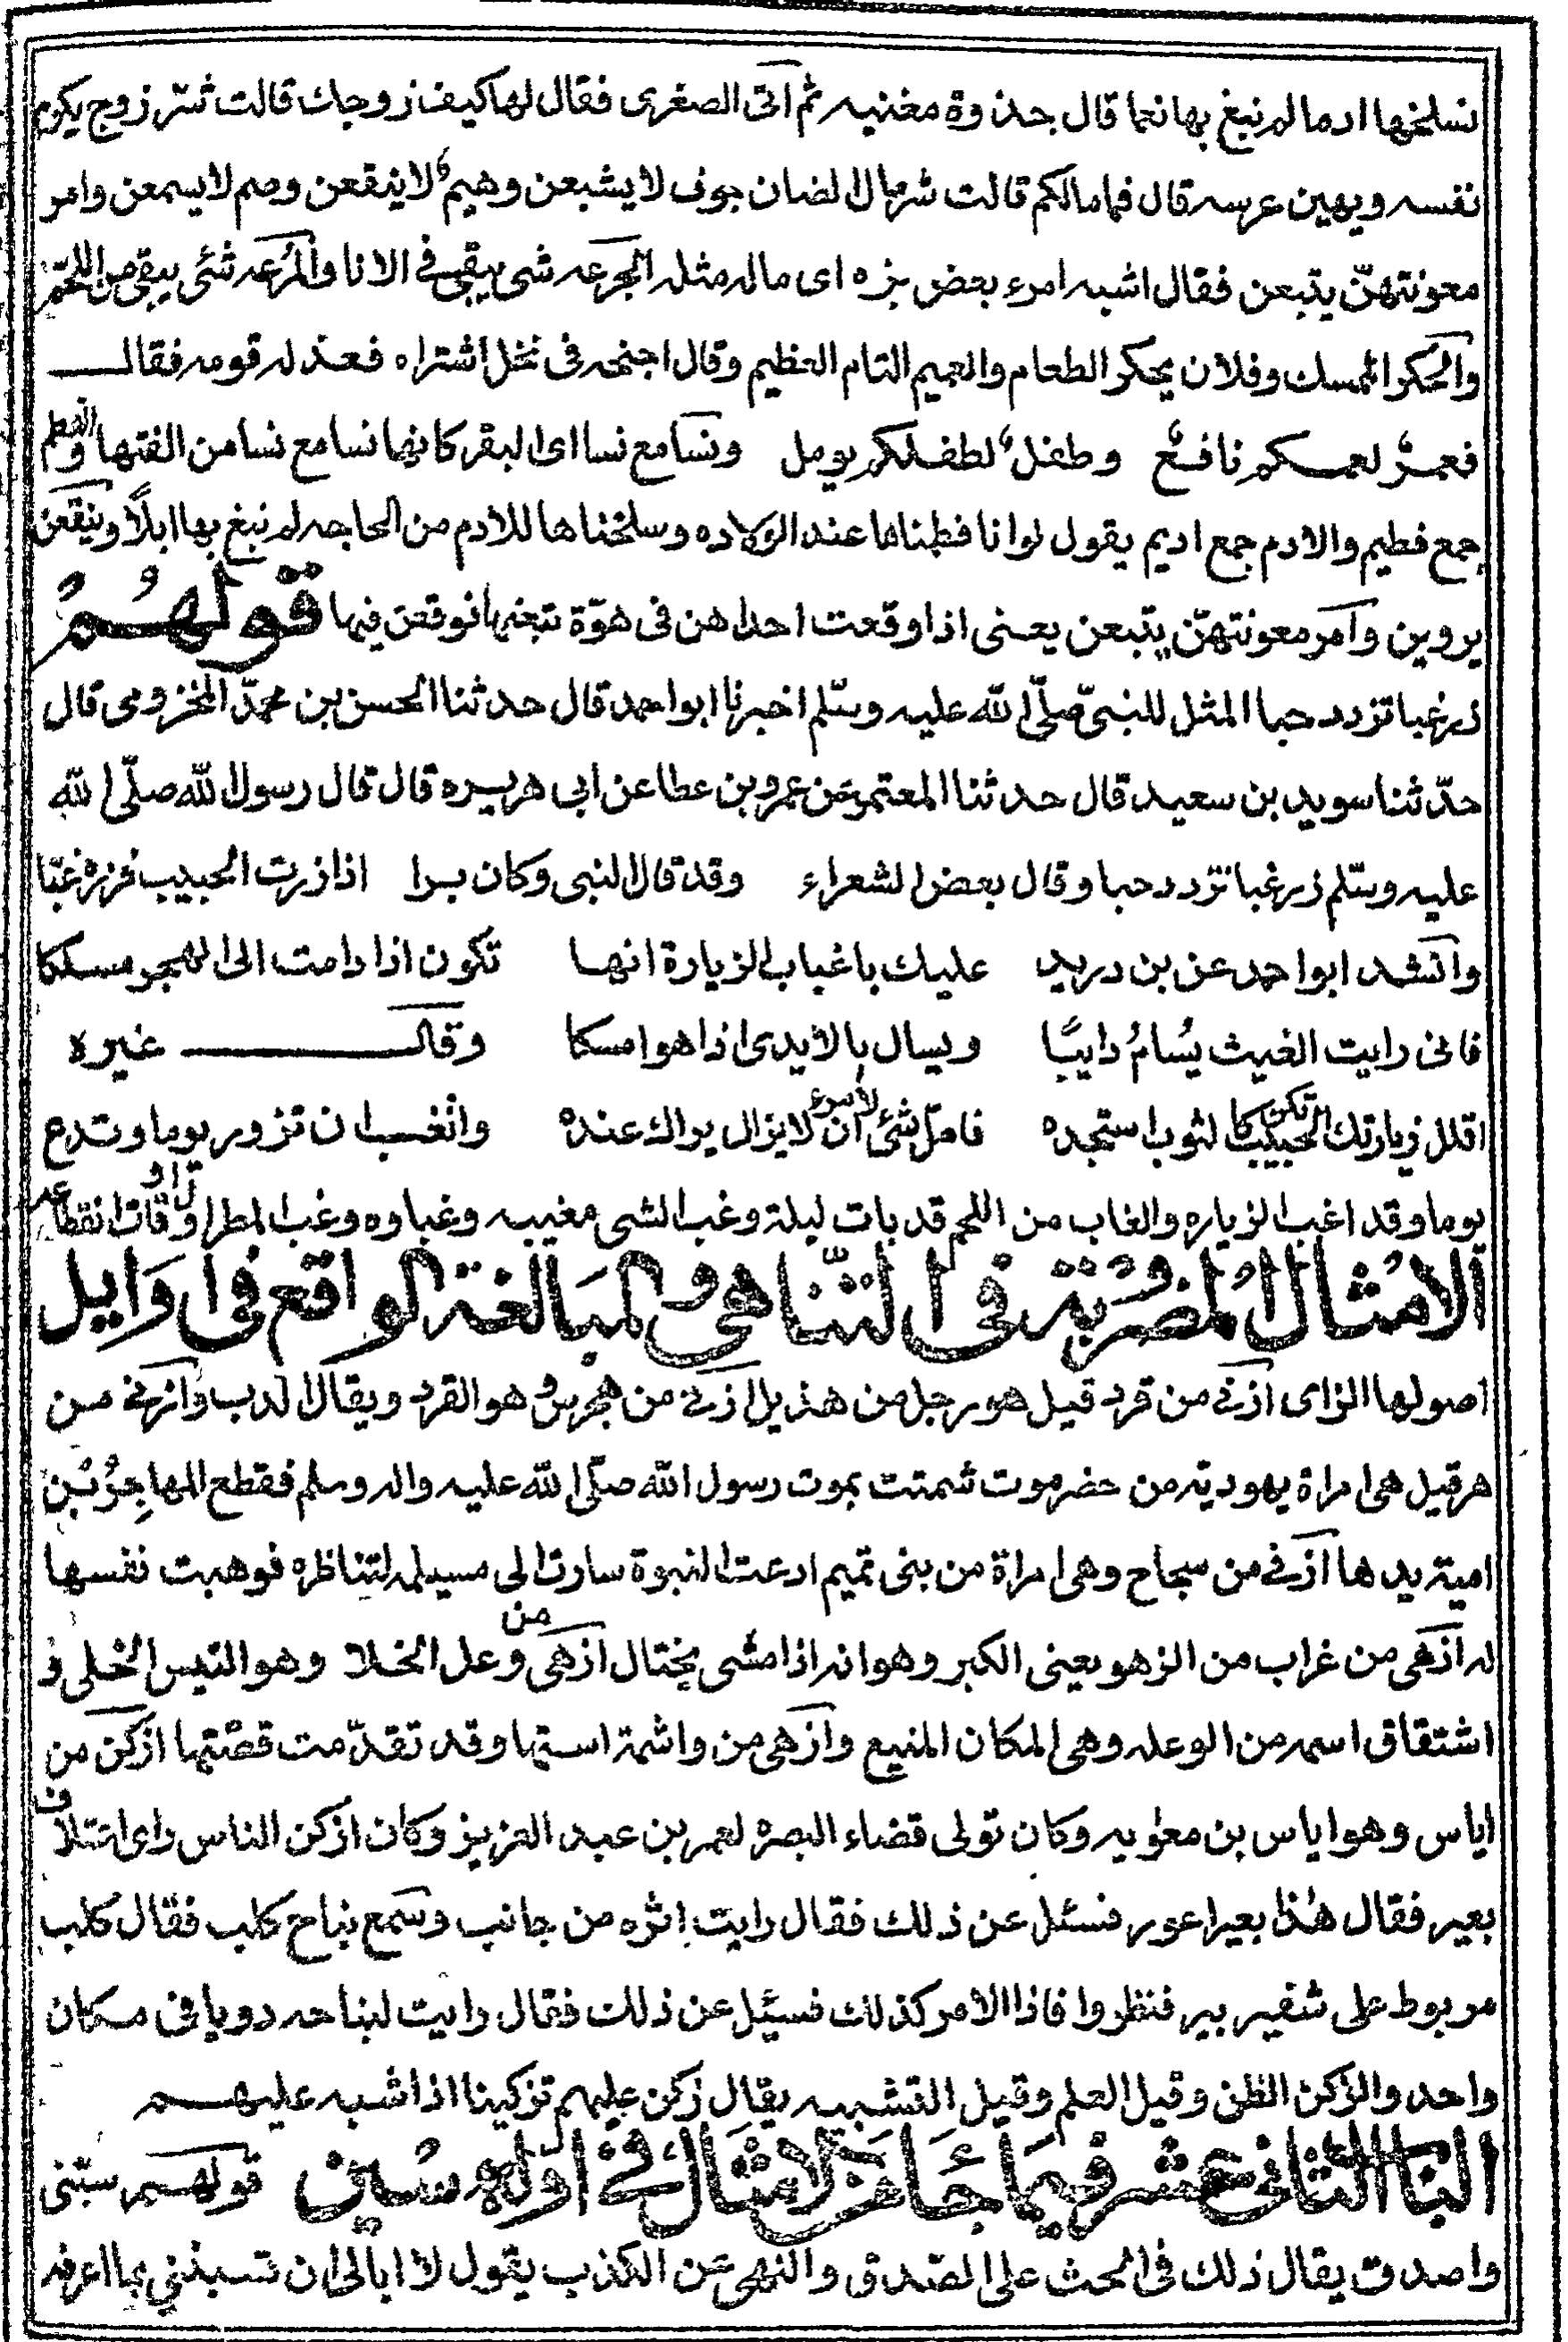 نسلخها ادما لم نبغ بها نعما قال جذوة مغنيه ثم اتى الصغرى فقال لها كيف زوجك قالت شر زوج يكرم
نفسه ويهين عرسه قال فما مالكم قالت شر مال الضان جوف لا يشبعن وهيم لا ينقعن وصم لا يسمعن وامر
معونتهنّ يتبعن فقال اشبه امرء بعض بزه اى ماله مثله الجرعه شى يبقى فى الانا والمزعه شئى يبقى من اللحم
والحكر الممسك وفلان يحكر الطعام والعميم التام العظيم وقال اجنحه فى نخل اشتراه فعذله قومه فقالـــ
فعمّ لعمكم نافع وطفل لطفلكم يومل ونسا مع نسا اى البقر كانها نسا مع نسا من الفتها والفطم
جمع فطيم والادم جمع اديم يقول لو انا فطمناها عند الولاده وسلخناها للادم من الحاجه لم نبغ بها ابلاً وينقعن
يروين وامر معونتهنّ يتبعن يعنى اذا وقعت احداهن فى هوّة تبعنها فوقعن فيها قولهم
زر غبا تزدد حبا المثل للنبىّ صلّى الله عليه وسلّم اخبرنا ابو احمد قال حدثنا الحسن بن محمّد المخزومى قال
حدّثنا سويد بن سعيد قال حدثنا المعتمر عن عمرو بن عطا عن ابى هريره قال قال رسول الله صلّى الله
عليه وسلّم زر غبا تزدد حبا وقال بعض الشعراء وقد قال النبى وكان برا اذا زرت الحبيب فزره غبّا
وانشد ابو احمد عن بن دريد عليك باغباب الزيارة انها تكون اذا دامت الى الهجر مسلكا
فانى رايت الغيث يُسامُ دايبًا ويسال بالايدى اذا هو امسكا وقالـــ غيره
اقلل زيارتك الحبيب تكن كالثوب استجده فامرّ شئى لامرء ان لا يزال يراك عنده وانغب ان تزور يوما وتدع
يوما وقد اغب الزياره والغاب من اللحم قد بات ليلة وغب الشى مغيبه وغباوه وغب المطر او قات انقطاعه
الامثال المضروبة فى التناهى والمبالغة الواقع فى اوايل
اصولها الزاى ازنى من قرد قيل هو رجل من هذيل ازنى من هجرس وهو القرد ويقال الدب وازنى من
هر قيل هى امراة يهودية من حضرموت شمتت بموت رسول الله صلّى الله عليه واله وسلم فقطع المهاجر بن
امية يدها ازنى من سجاح وهى امراة من بنى تميم ادعت النبوة سارت الى مسيلمه لتناظره فوهبت نفسها
له ازهى من غراب من الزهو يعنى الكبر وهو انه اذا مشى يختال ازهى من وعل الخلا وهو التيس الخلى و
اشتقاق اسمه من الوعله وهى المكان المنيع وازهى من واشمة استها وقد تقدّمت قصّتها ازكن من
اياس وهو اياس بن معويه وكان تولى قضاء البصره لعمر بن عبد العزيز وكان ازكن الناس راى اعتلاف
بعير فقال هذا بعير اعور فسئل عن ذلك فقال رايت اثره من جانب وسمع نباح كلب فقال كلب
مربوط على شفير بير فنظروا فاذا الامر كذلك فسئل عن ذلك فقال رايت لنباحه دويا فى مكان
واحد والزكن الظن وقيل العلم وقيل التشبيه يقال زكن عليهم تزكينا اذا شبه عليهم
البا الثانى عشر فيما جا من الامثال فى اوله سين قولهم سبّنى
واصدق يقال ذلك فى الحث على الصّدق والنهى عن الكذب يقول لا ابالى ان تسبنى بما اعرفه